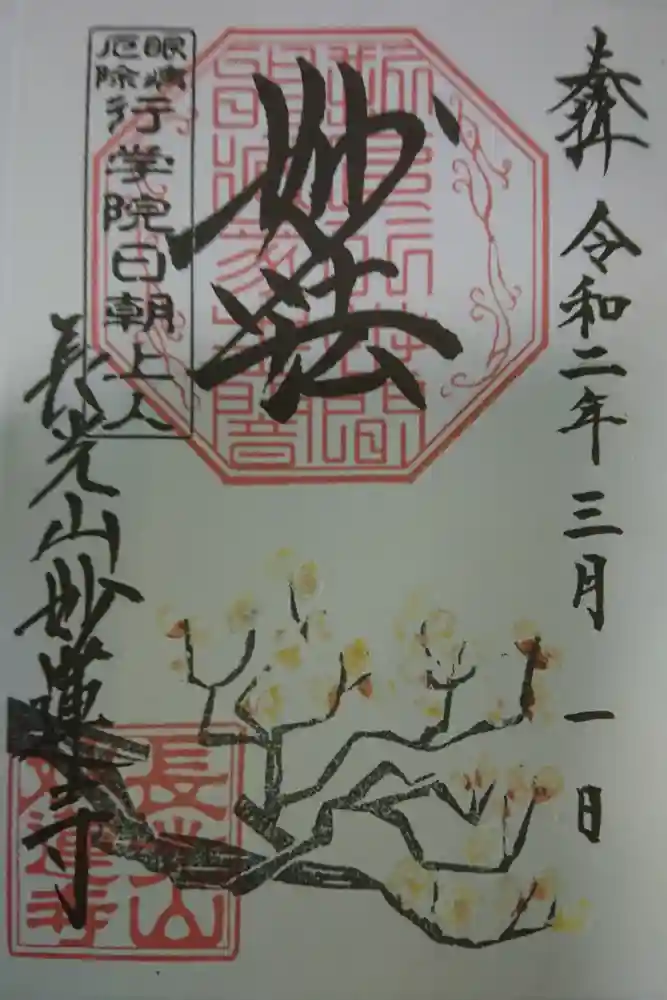 奉拝 令和二年 三月 一日
妙法
眼病
厄除
行学院日朝上人
長光山妙蓮寺
長光山
妙蓮寺